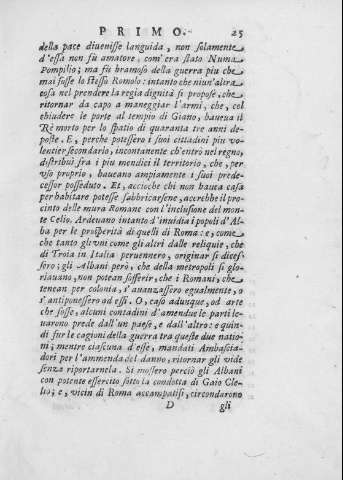 PRIMO. 25
della pace diuenisse languida, non solamente
d'essa non fù amatore, com'era stato Numa
Pompilio; ma fù bramoso della guerra piu che
mai fosse lo stesso Romolo: intanto che niun'altra
cosa nel prendere la regia dignità si propose, che
ritornar da capo a maneggiar l'armi, che, col
chiudere le porte al tempio di Giano, haueua il
Rè morto per lo spatio di quaranta tre anni de-
poste. E, perche potessero i suoi cittadini piu vo-
lentier secondarlo, incontanente ch'entrò nel regno,
distribuì fra i piu mendici il territorio, che, per
vso proprio, haueano ampiamente i suoi prede-
cessor posseduto. Et, accioche chi non hauea casa
per habitare potesse fabbricarsene, accrebbe il pro-
cinto delle mura Romane con l'inclusione del mon-
te Celio. Ardeuano intanto d'inuidia i popoli d'Al-
ba per le prosperità di quelli di Roma: e, come
che tanto gli vni come gli altri dalle reliquie, che
di Troia in Italia peruennero, originar si dices-
sero; gli Albani però, che della metropoli si glo-
riauano, non potean sofferir, che i Romani, che
tenean per colonia, s'auanzassero egualmente, o
s'antiponessero ad essi. O, caso adunque, od arte
che fosse, alcuni contadini d'amendue le parti le-
uarono prede dall'un paese, e dall'altro: e quin-
di fur le cagioni della guerra tra queste due natio-
ni; mentre ciascuna d'esse, mandati Ambascia-
dori per l'ammenda del danno, ritornar gli vide
senza riportarnela. Si mossero perciò gli Albani
con potente essercito sotto la condotta di Gaio Cle-
lio; e, vicin di Roma accampatisi, circondarono
D gli